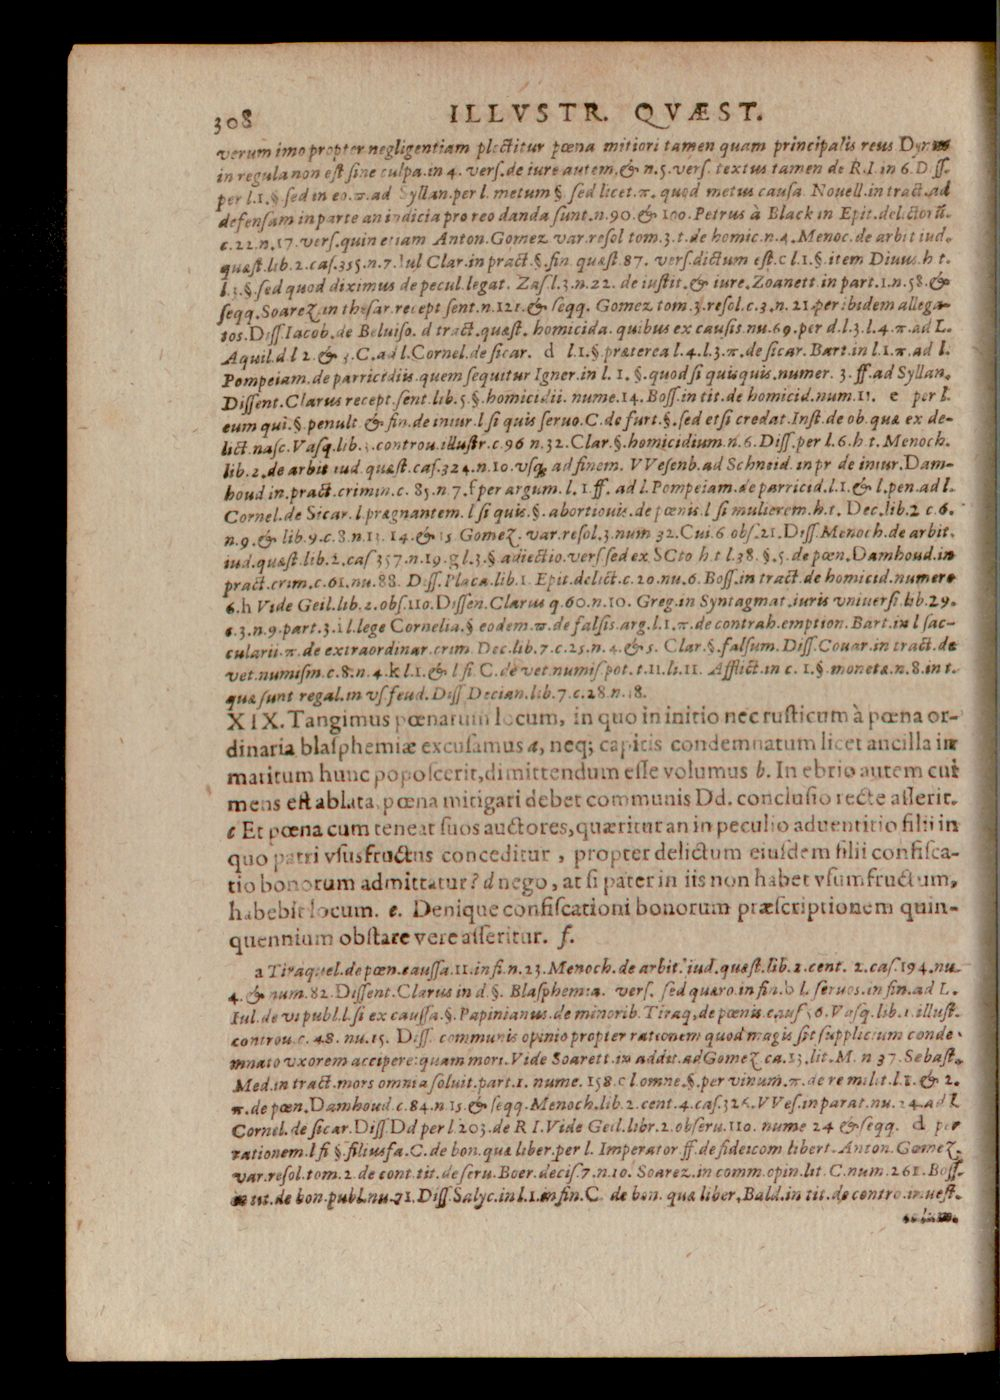 308 ILLVSTR. QVÆST.
verum imo propter negligentiam plectitur pœna mitiori tamen quam principalis reus Dynus
in regula non est sine culpa.in 4. vers.de iure autem,& n.5.vers. textus tamen de R.I.in 6.D.ff.
per l.1.§ sed in eo.π.ad Syllan.per l. metum § sed licet.π. quod metus causa. Nouell.in tract.ad
defensam in parte an indicia pro reo danda sunt.n.90.& 100.Petrus à Black in Epit.delictorū.
c.22.n.17.vers.quin etiam Anton.Gomez var.resol tom.3.t.de homic.n.4.Menoc.de arbit iud.
quæst.lib.2.cas.355.n.7.Iul Clar.in pract.§.fin.quæst.87. vers.dictum est.c l.1.§.item Diuus.h t.
l.3.§.sed quod diximus de pecul.legat. Zas.l.3.n.22. de iustit.& iure.Zoanett.in part.1.n.58.&
seqq.Soarez.in thesar.recept sent.n.121.& seqq. Gomez tom.3.resol.c.3.n.21.per ibidem allega-
tos.Diss.Iacob.de Beluiso. d tract.quæst. homicida. quibus ex causis.nu.69.per d.l.3.l.4.π.ad L.
Aquil.d l 2.& 3.C.ad l.Cornel.de sicar. d l.1.§.præterea l.4.l.3.π.de sicar.Bart.in l.1.π.ad l.
Pompeiam.de parricidiis.quem sequitur Igner.in l. 1. §.quod si quisquis.numer. 3.ff.ad Syllan.
Dissent.Clarus recept.sent.lib.5.§.homicidii. nume.14.Boss.in tit.de homicid.num.11. e per l.
eum qui.§.penult.& fin.de iniur.l si quis seruo.C.de furt.§.sed etsi credat.Inst.de ob.quæ ex de-
lict.nasc.Vasq.lib.3.controu.illustr.c.96 n.32.Clar.§.homicidium.n.6.Diss.per l.6.h t.Menoch.
lib.2.de arbit iud.quæst.cas.324.n.10.vsq; ad finem. VVesenb.ad Schneid.in pr de iniur.Dam-
houd in.pract.crimin.c. 85.n.7.f per argum.l.1.ff. ad l.Pompeiam.de parricid.l.1.& l.pen.ad l.
Cornel.de Sicar.l prægnantem.l si quis.§.abortiouis.de pœnis.l si mulierem.h.t. Dec.lib.2 c.6.
n.9.& lib.9.c.8.n.13. 14.& 15 Gomez. var.resol.3.num 32.Cui.6 obs.21.Diss.Menoch.de arbit.
iud.quæst.lib.2.cas 357.n.19.g l.3.§ adiectio.vers sed ex SCto h.t l.38. §.5.de pœn.Damhoud.in
pract.crim.c.61.nu.88. Diss.Placa.lib.1. Epit.delict.c.20.nu.6.Boss.in tract.de homicid.numero
6.h Vide Geil.lib.2.obs.110.Dissen.Clarus q.60.n.10. Greg.in Syntagmat.iuris vniuersi.lib.29.
c.3.n.9.part.3.i l.lege Cornelia.§ eodem.π.de falsis.arg.l.1.π.de contrah.emption.Bart.in l sac-
cularii.π.de extraordinar.crim. Dec.lib.7.c.25.n.4.& 5. Clar.§.falsum.Diss.Couar.in tract.de
vet.numism.c.8.n.4.k l.1.& l si C.de vet.numis.pot.t.11.li.11. Afflict.in c. 1.§.moneta.n.8.in t.
quæ sunt regal.in vs feud.Diss Decian.lib.7.c.28.n.18.
XIX. Tangimus pœnarum locum, in quo in initio nec rusticum à pœna or-
dinaria blasphemiæ excusamus a, neq; capitis condemnatum licet ancilla in
maritum hunc poposcerit,dimittendum esse volumus b. In ebrio autem cui
mens est ablata, pœna mitigari debet communis Dd. conclusio recte asserit.
c Et pœna cum teneat suos auctores,quæritur an in peculio aduentitio filii in
quo patri vsusfructus conceditur , propter delictum eiusdem filii confisca-
tio bonorum admittatur? d nego, at si pater in iis non habet vsumfructum,
habebit locum. e. Denique confiscationi bonorum præscriptionem quin-
quennium obstare vere asseritur. f.
a Tiraquel.de pœn.caussa.11.in fi.n.23.Menoch.de arbit.iud.quæst.lib.2.cent. 2.cas.194.nu.
4.& num.82.Dissent.Clarus in d §. Blasphemia. vers. sed quæro.in fin.b l. seruos.in fin.ad L.
Iul.de vi publ.l.si ex caussa.§.Papinianus.de minorib.Tiraq,de pœnis.caus 56.Vasq.lib.1.illust.
controu.c. 48. nu.15. Diss. communis opinio propter rationem quod magis sit supplicium conde-
mnato vxorem accipere:quam mori.Vide Soarett.in addit.ad Gomez ca.13.lit.M. n 37.Sebast.
Med.in tract.mors omnia soluit.part.1. nume. 158.c l omne.§.per vinum.π.de re milit.l.1.& 2.
π.de pœn.Damhoud.c.84.n.15.& seqq.Menoch.lib.2.cent.4.cas.326.VVes.in parat.nu.24.ad l.
Cornel.de sicar.Diss.Dd per l.203.de R I.Vide Geil.libr.2.obseru.110. nume 24 & seqq. d per
rationem.l si §.filiusfa.C.de bon.quæ liber.per l. Imperator.ff.de fideicom libert. Anton.Gomez.
var.resol.tom.2.de cont.tit.de seru.Boer.decis.7.n.10. Soarez.in comm.opin.lit C.num.261.Boss.
in tit.de bon.publ.nu.71.Diss.Salyc.in l.1.in fin.C. de bon.quæ liber,Bald.in tit.de contro.inuest.